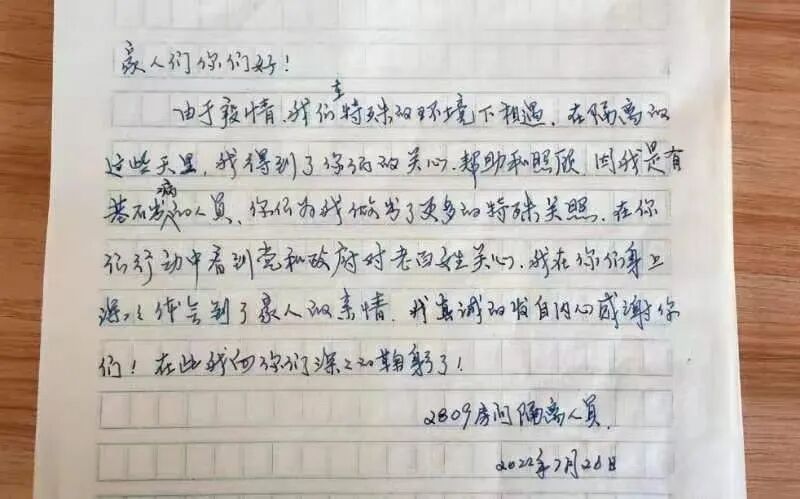 家人们你们好!
由于疫情,我们在特殊的环境下相遇,在隔离的
这些天里,我得到了你们的关心、帮助和照顾,因我是有
基础病的人员,你们为我做出了更多的特殊关照,在你
们行动中看到党和政府对老百姓关心,我在你们身上
深深体会到了家人的亲情,我真诚的发自内心感谢你
们!在此我向你们深深的鞠躬了!
2809房间隔离人员.
2022年7月26日